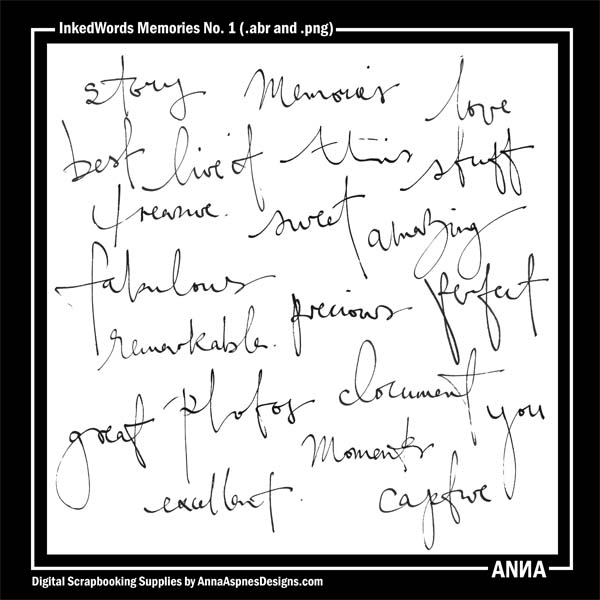 InkedWords Memories No. 1 (.abr and .png)
story Memories love
best live it this stuff
treasure. sweet amazing
fabulous precious perfect
remarkable.
great photos document you
Moments
excellent. capture
ANNA
Digital Scrapbooking Supplies by AnnaAspnesDesigns.com